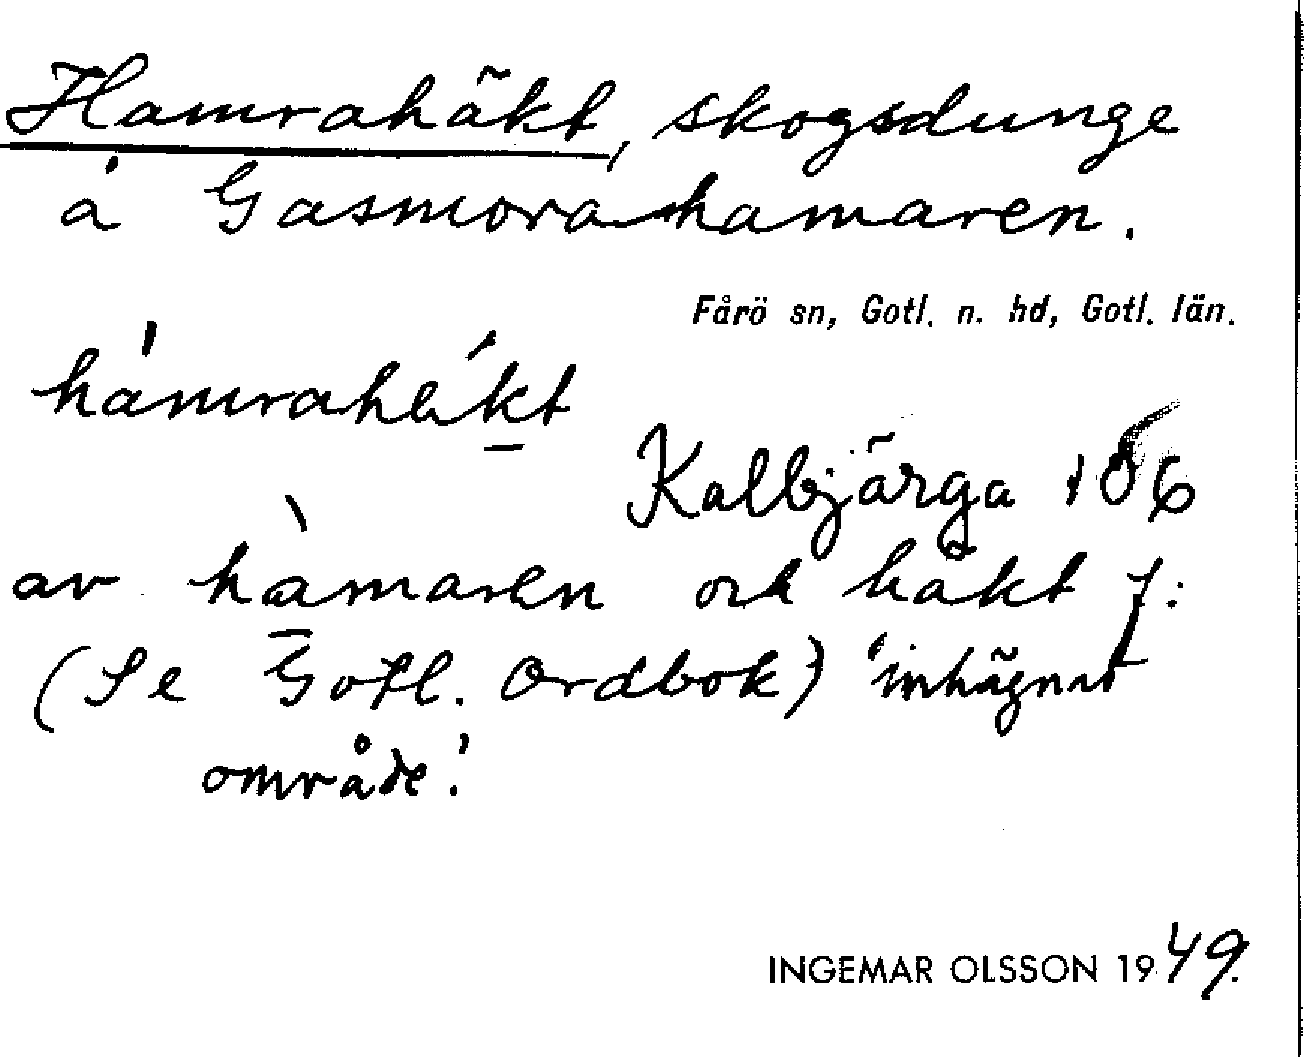 Hamrahäkt, skogsdunge
å Gasmorahamaren.
Fårö sn, Gotl. n. hd, Gotl. län.
hámrahäkt
Kalbjärga 106
av hàmaren och häkt f:
(Se Gotl. Ordbok) 'inhägnat
område'.
INGEMAR OLSSON 1949.